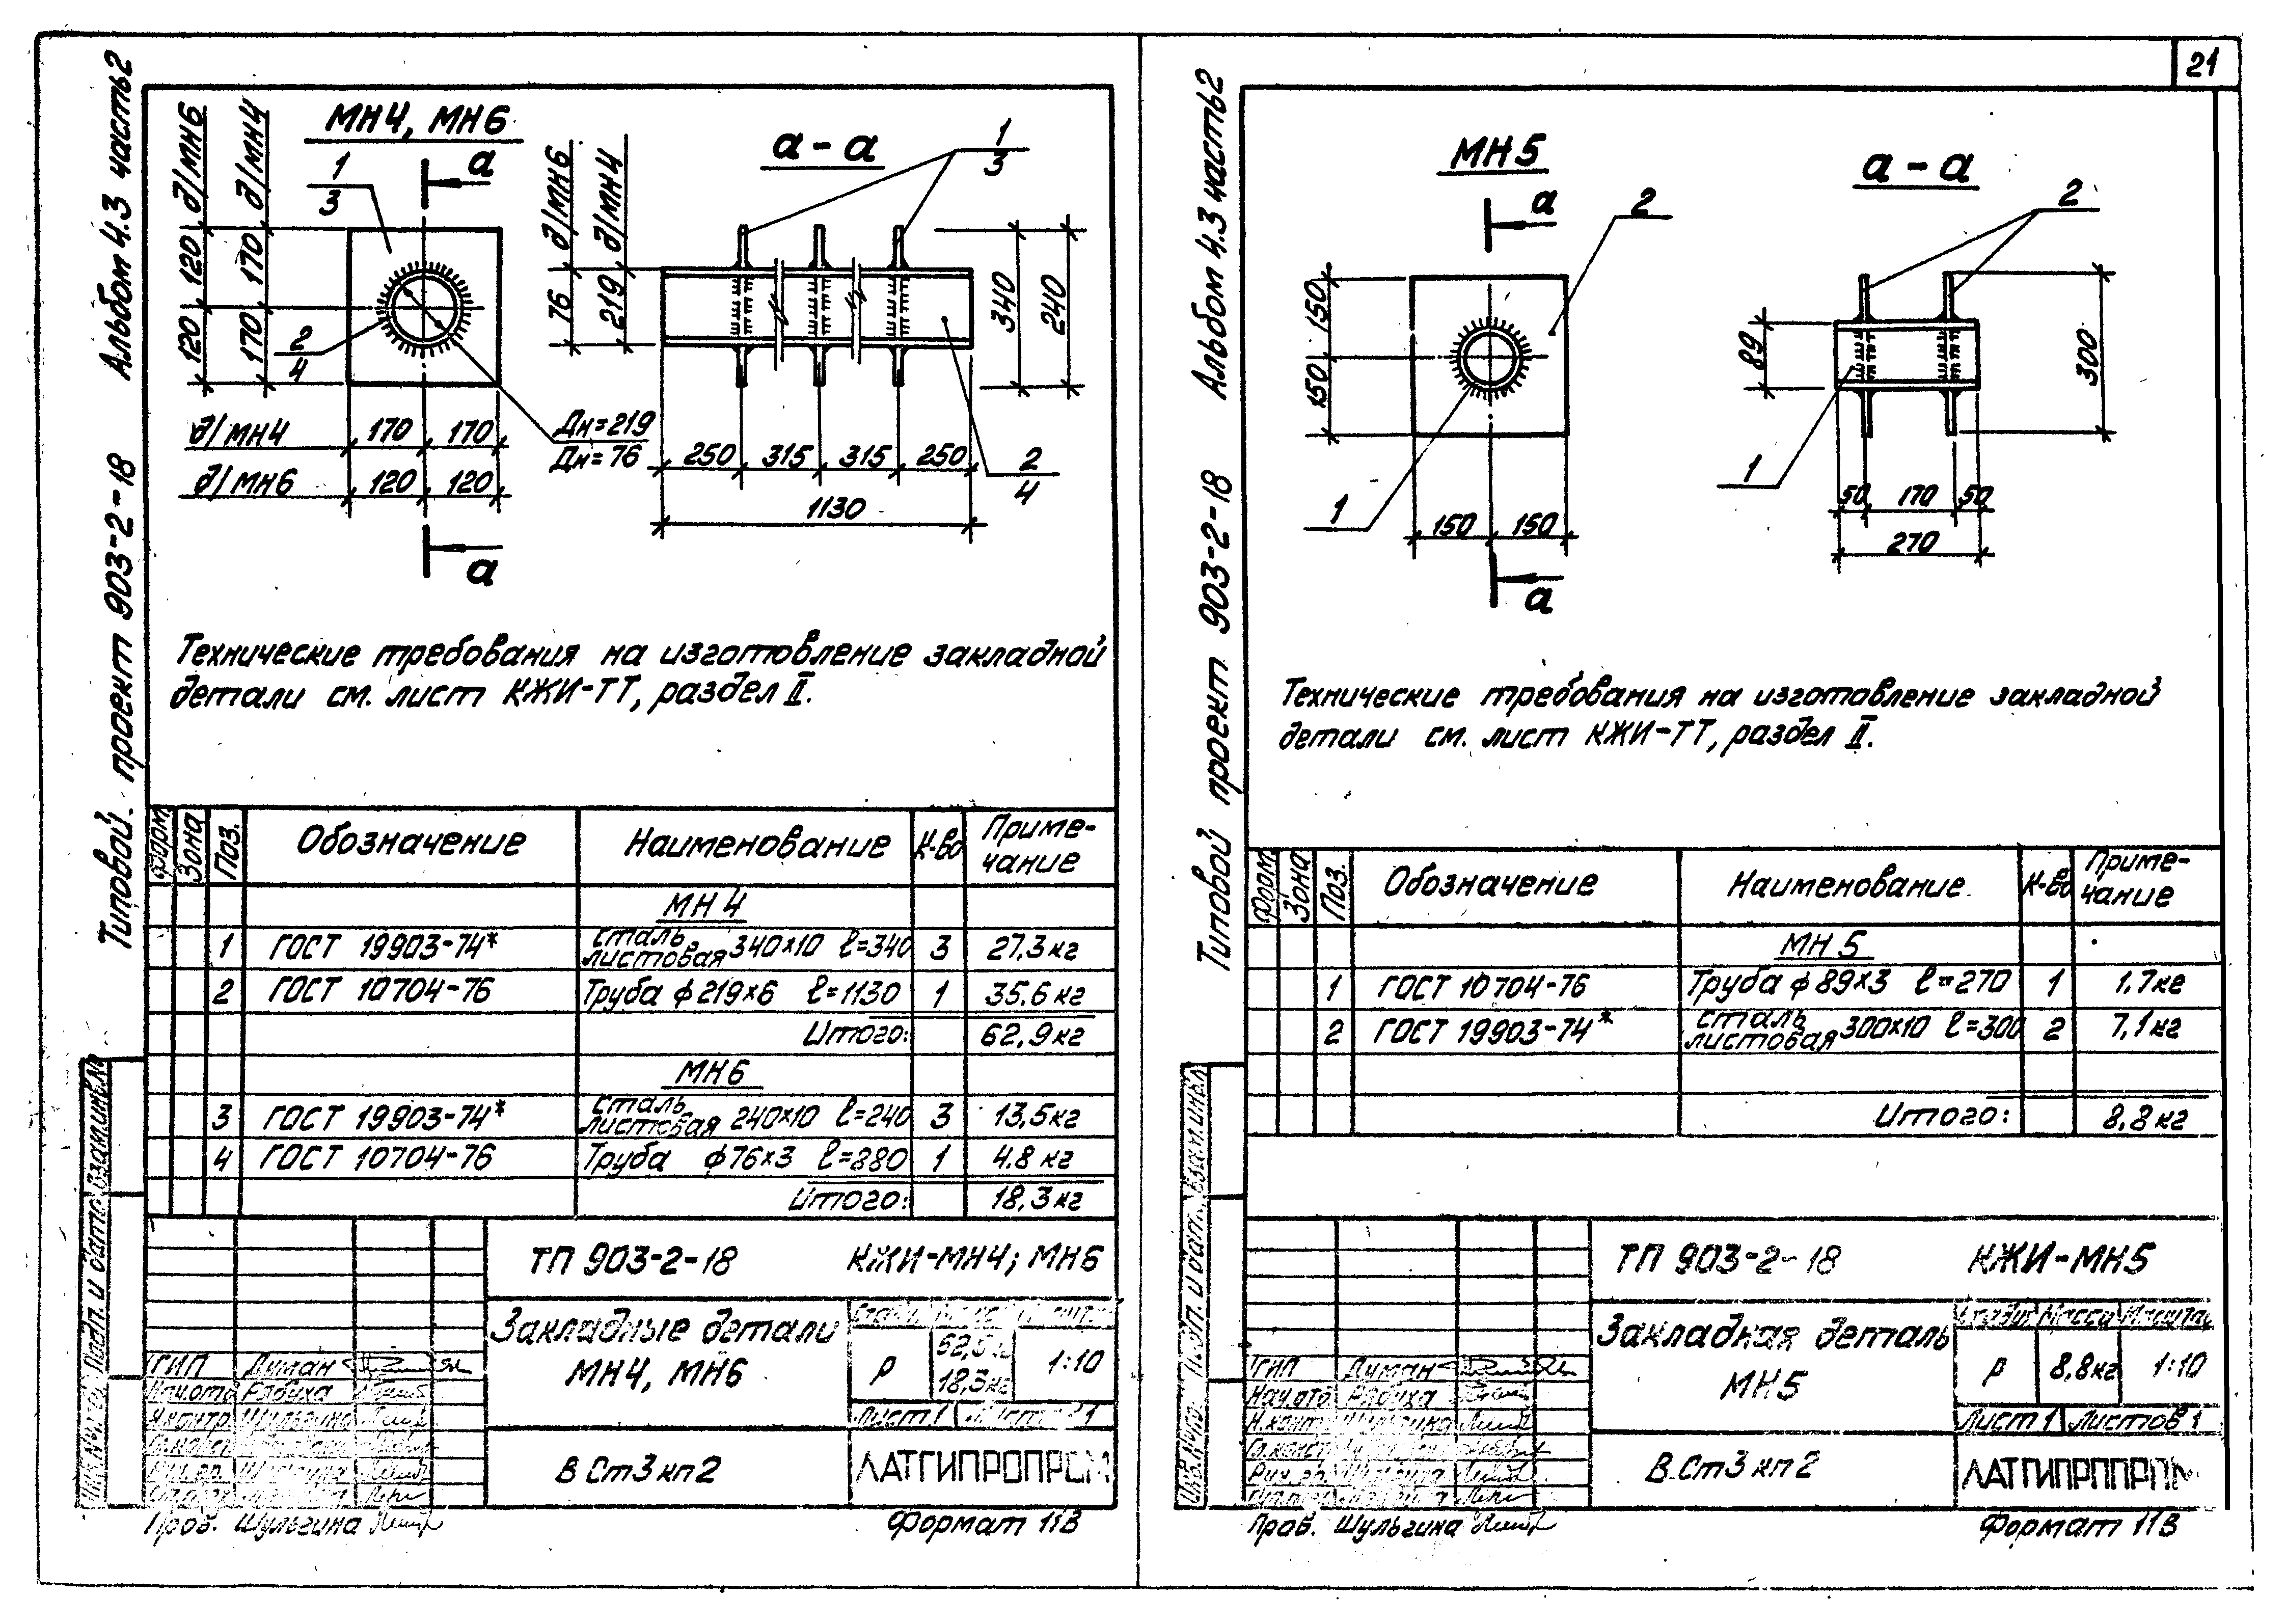 21
Альбом 4.3 часть 2
Типовой проект 903-2-18
МН4, МН6
д/МН6
д/МН4
120
120
170
170
1
3
2
4
а
а
д/МН4 170 170
д/МН6 120 120
Дн=219
Дн=76
а-а
1
3
д/МН6
д/МН4
76
219
340
240
250 315 315 250
1130
2
4
Технические требования на изготовление закладной
детали см. лист КЖИ-ТТ, раздел II.
Форм. Зона Поз. Обозначение Наименование К-во Приме-
чание
МН4
1 ГОСТ 19903-74* сталь листовая 340×10 ℓ=340 3 27,3 кг
2 ГОСТ 10704-76 Труба ф219×6 ℓ=1130 1 35,6 кг
Итого: 62,9 кг
МН6
3 ГОСТ 19903-74* сталь листовая 240×10 ℓ=240 3 13,5 кг
4 ГОСТ 10704-76 Труба ф76×3 ℓ=880 1 4.8 кг
Итого: 18,3 кг
Взам.инв.№
Подп. и дата
ТП 903-2-18 КЖИ-МН4; МН6
Закладные детали
МН4, МН6
Р
18,3кг
1:10
Лист 1
ГИП Думан
Н.контр Шульгина
В Ст3 кп2
ЛАТГИПРОПРОМ
Пров. Шульгина
Формат 11В
Альбом 4.3 часть 2
Типовой проект 903-2-18
МН5
а
а
2
1
150
150
150 150
а-а
2
89
300
1
50 170 50
270
Технические требования на изготовление закладной
детали см. лист КЖИ-ТТ, раздел II.
Форм Зона Поз. Обозначение Наименование К-во Приме-
чание
МН5
1 ГОСТ 10704-76 Труба ф89×3 ℓ=270 1 1.7кг
2 ГОСТ 19903-74* сталь листовая 300×10 ℓ=300 2 7,1кг
Итого: 8,8 кг
Взам.инв.№
ТП 903-2-18 КЖИ-МН5
Закладная деталь
МН5
Стадия Масса Масштаб
Р 8,8кг 1:10
Лист 1 Листов 1
ГИП Думан
Нач.отд. Рябуха
В Ст3 кп2
ЛАТГИПРОПРОМ
Пров. Шульгина
Формат 11В